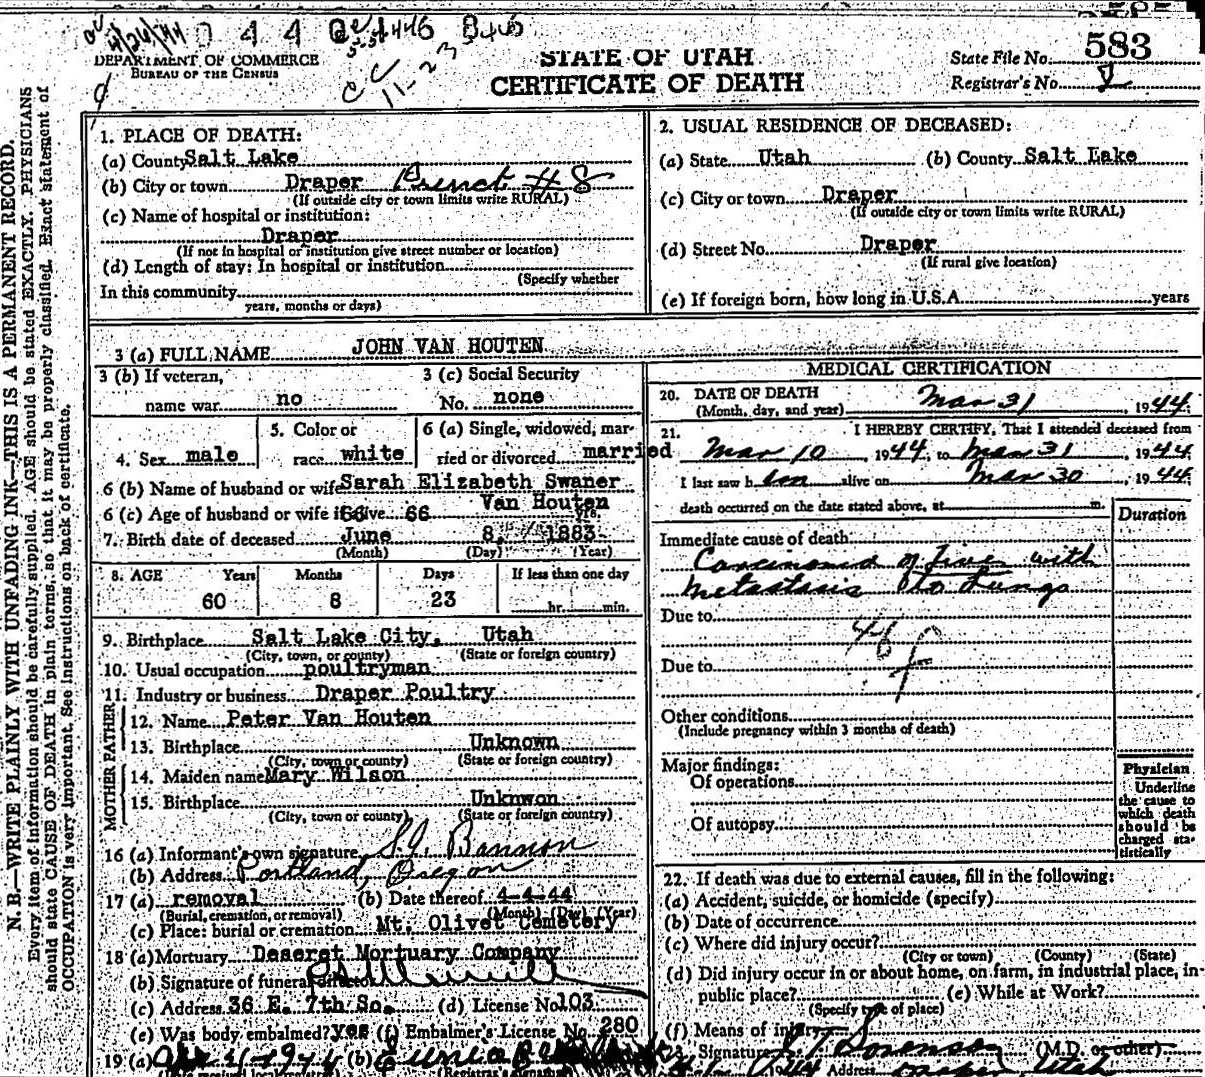 583
4/26/44 0 4 4
DEPARTMENT OF COMMERCE
BUREAU OF THE CENSUS
11-23
STATE OF UTAH
CERTIFICATE OF DEATH
State File No. 583
Registrar's No.
N. B.—WRITE PLAINLY WITH UNFADING INK—THIS IS A PERMANENT RECORD.
Every item of information should be carefully supplied. AGE should be stated EXACTLY. PHYSICIANS
should state CAUSE OF DEATH in plain terms, so that it may be properly classified. Exact statement of
OCCUPATION is very important. See instructions on back of certificate.
1. PLACE OF DEATH:
(a) County Salt Lake
(b) City or town Draper Princt #8
(If outside city or town limits write RURAL)
(c) Name of hospital or institution:
Draper
(If not in hospital or institution give street number or location)
(d) Length of stay: In hospital or institution
(Specify whether
In this community
years, months or days)
2. USUAL RESIDENCE OF DECEASED:
(a) State Utah (b) County Salt Lake
(c) City or town Draper
(If outside city or town limits write RURAL)
(d) Street No. Draper
(If rural give location)
(e) If foreign born, how long in U.S.A. years
3 (a) FULL NAME JOHN VAN HOUTEN
3 (b) If veteran, name war no
3 (c) Social Security No. none
4. Sex male
5. Color or race white
6 (a) Single, widowed, married or divorced married
6 (b) Name of husband or wife Sarah Elizabeth Swaner
Van Houten
6 (c) Age of husband or wife if alive 66 yrs.
7. Birth date of deceased June 8, 1883
(Month) (Day) (Year)
8. AGE Years Months Days If less than one day
60 8 23 hr. min.
9. Birthplace Salt Lake City, Utah
(City, town, or county) (State or foreign country)
10. Usual occupation poultryman
11. Industry or business Draper Poultry
FATHER
12. Name Peter Van Houten
13. Birthplace Unknown
(City, town or county) (State or foreign country)
MOTHER
14. Maiden name Mary Wilson
15. Birthplace Unknwon
(City, town or county) (State or foreign country)
16 (a) Informant's own signature S.J. Bannon
(b) Address Portland, Oregon
17 (a) removal (b) Date thereof 4-4-44
(Burial, cremation, or removal) (Month) (Day) (Year)
(c) Place: burial or cremation Mt. Olivet Cemetery
18 (a) Mortuary Deseret Mortuary Company
(b) Signature of funeral director
(c) Address 36 E. 7th So. (d) License No. 103
(e) Was body embalmed? yes (f) Embalmer's License No. 280
19 (a) (b)
MEDICAL CERTIFICATION
20. DATE OF DEATH
(Month, day, and year) Mar 31, 1944
21. I HEREBY CERTIFY, That I attended deceased from
Mar 10 1944, to Mar 31, 1944
I last saw him alive on Mar 30, 1944
death occurred on the date stated above, at m.
Duration
Immediate cause of death
Carcinoma of Liver with
Metastasis to Lungs
Due to
46 f
Due to
Other conditions
(Include pregnancy within 3 months of death)
Major findings:
Of operations
Of autopsy
Physician
Underline
the cause to
which death
should be
charged sta-
tistically
22. If death was due to external causes, fill in the following:
(a) Accident, suicide, or homicide (specify)
(b) Date of occurrence
(c) Where did injury occur?
(City or town) (County) (State)
(d) Did injury occur in or about home, on farm, in industrial place, in
public place? (e) While at Work?
(Specify type of place)
(f) Means of injury
23. Signature Sorenson (M.D. or other)
1944 Address Draper, Utah